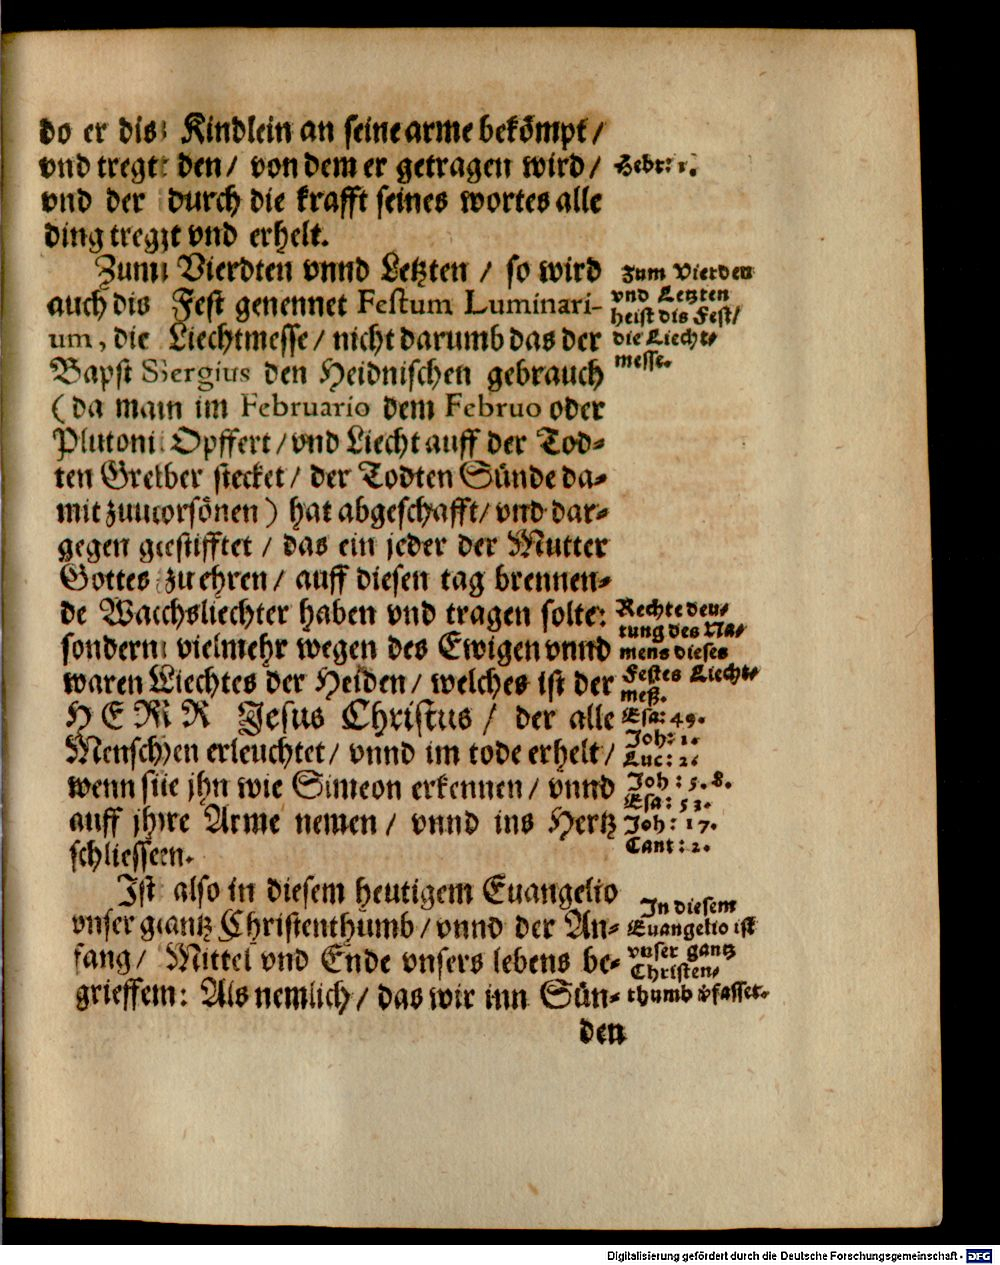 do er dis Kindlein an seine arme bekömpt /
vnd tregt den / von dem er getragen wird /
Hebr: 1.
vnd der durch die krafft seines wortes alle
ding tregt vnd erhelt.
Zum Vierdten vnnd Letzten / so wird
auch dis Fest genennet Festum Luminari-
um, die Liechtmesse / nicht darumb das der
Bapst Sergius den Heidnischen gebrauch
( da man im Februario dem Februo oder
Plutoni Opffert / vnd Liecht auff der Tod-
ten Greber stecket / der Todten Sünde da-
mit zuuorsönen ) hat abgeschafft / vnd dar-
gegen gestifftet / das ein jeder der Mutter
Gottes zu ehren / auff diesen tag brennen-
de Wachsliechter haben vnd tragen solte:
sondern vielmehr wegen des Ewigen vnnd
waren Liechtes der Heiden / welches ist der
HERR Jesus Christus / der alle
Menschen erleuchtet / vnnd im tode erhelt /
wenn sie jhn wie Simeon erkennen / vnnd
auff jhre Arme nemen / vnnd ins Hertz
schliessen.
Zum Vierden
vnd Letzten
heist dis Fest /
die Liecht-
messe.
Rechte deu-
tung des Na-
mens dieses
Festes Liecht-
meß.
Esa: 49.
Joh: 1.
Luc: 2.
Joh: 5. 8.
Esa: 53.
Joh: 17.
Cant: 2.
Ist also in diesem heutigem Euangelio
vnser gantz Christenthumb / vnnd der An-
fang / Mittel vnd Ende vnsers lebens be-
grieffen: Als nemlich / das wir inn Sün-
den
In diesem
Euangelio ist
vnser gantz
Christen-
thumb v̈fasset.
Digitalisierung gefördert durch die Deutsche Forschungsgemeinschaft - DFG